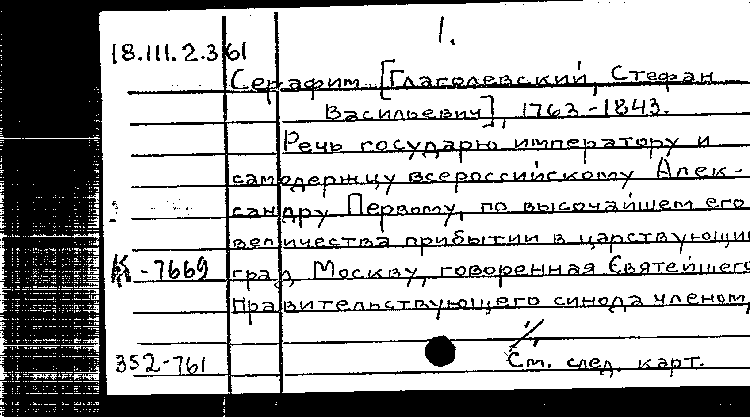 1.
18.III.2.361
Серафим [Глаголевский, Стефан
Васильевич], 1763-1843.
Речь государю императору и
самодержцу всероссийскому Алек-
сандру Первому, по высочайшем его
величества прибытии в царствующий
К-7669 град Москву, говоренная Святейшего
правительствующего синода членом,
352-761 См. след. карт.